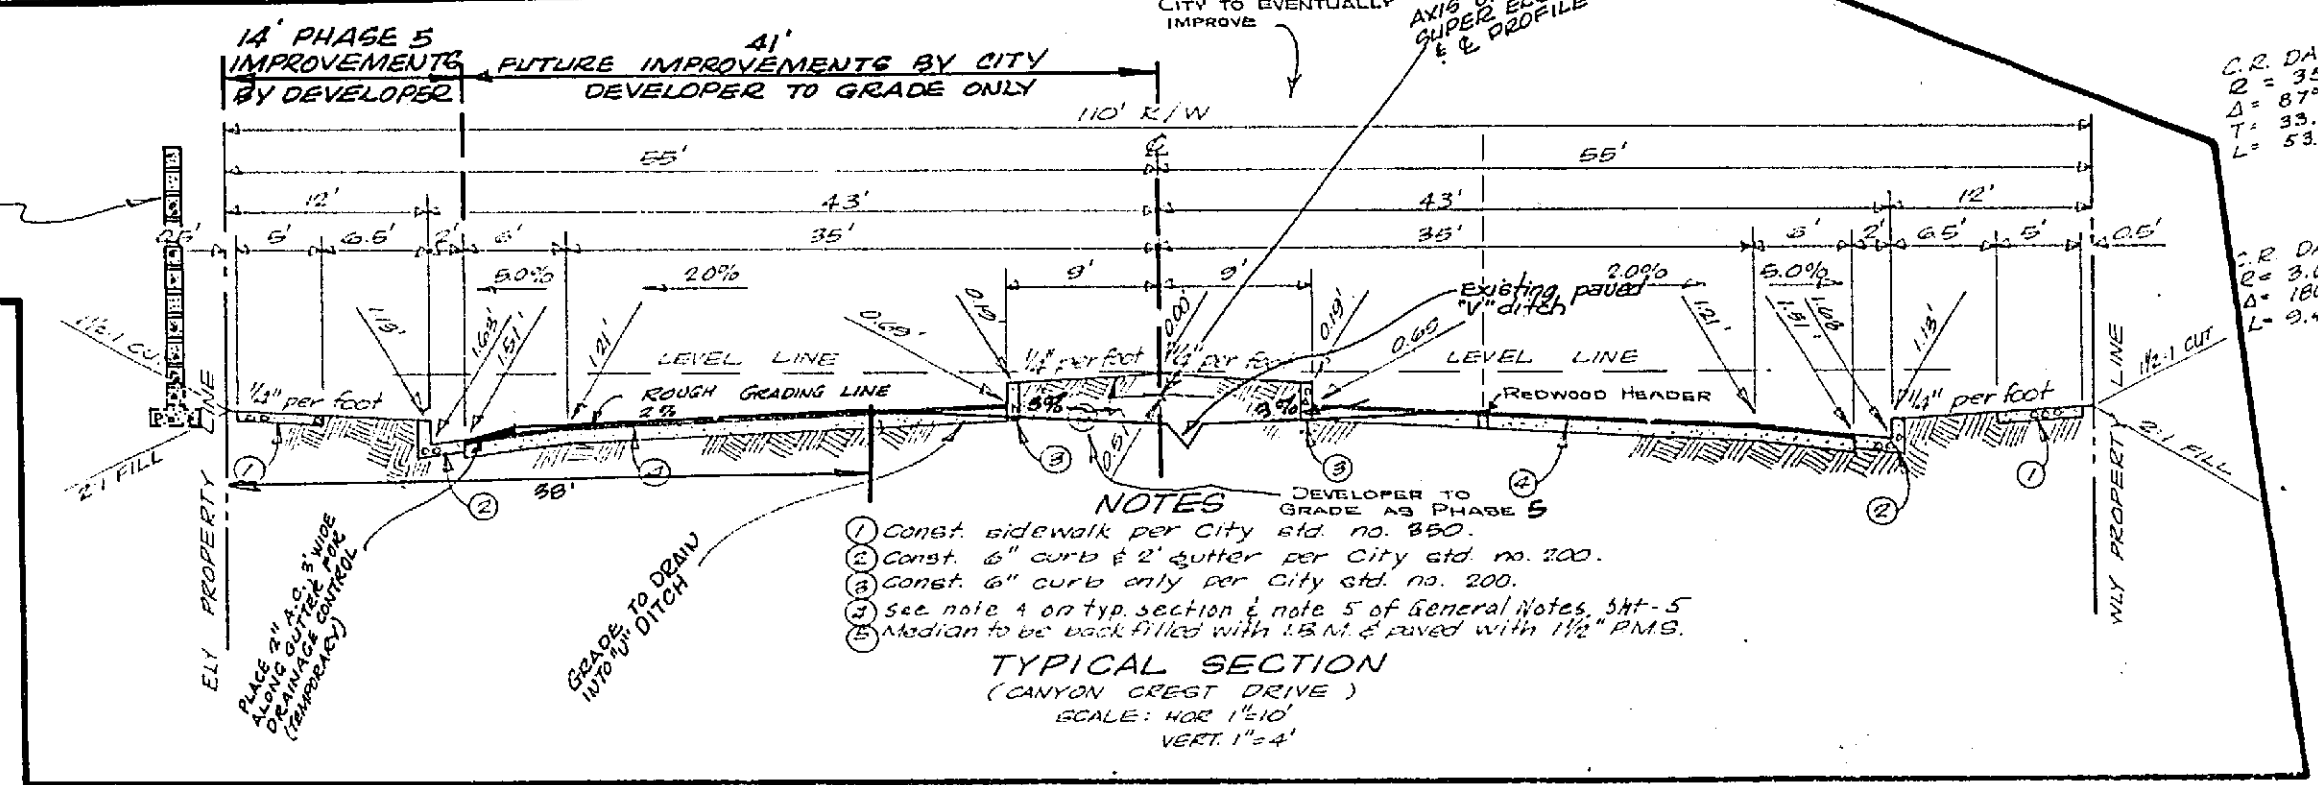 CITY TO EVENTUALLY
IMPROVE
AXIS
SUPER
& ℄ PROFILE
14' PHASE 5
IMPROVEMENTS
BY DEVELOPER
41'
FUTURE IMPROVEMENTS BY CITY
DEVELOPER TO GRADE ONLY
C.R. DA
R = 35
Δ = 87°
T = 33.
L = 53.
110' R/W
℄
55' 55'
12' 43' 43' 12'
5' 6.5' 2' 6' 35' 35' 6' 2' 6.5' 5' 0.5'
5.0% 2.0% 9' 9' 2.0% 5.0%
C.R. DA
R = 3.0
Δ = 180
L = 9.4
Existing paved
"V" ditch
1.13' 1.63' 1.51' 1.21' 0.69' 0.19' 0.00' 0.19' 0.69 1.21' 1.51' 1.63' 1.13'
1½:1 CUT
LEVEL LINE
¼" per foot ¼" per foot
LEVEL LINE
1½:1 CUT
¼" per foot
ROUGH GRADING LINE
2%
3% 3%
REDWOOD HEADER
¼" per foot
2:1 FILL
2:1 FILL
38'
ELY PROPERTY LINE
WLY PROPERTY LINE
1 2 4 3 5 3 4 2 1
0.5'
DEVELOPER TO
GRADE AS PHASE 5
PLACE 2" A.C. 3' WIDE
ALONG GUTTER FOR
DRAINAGE CONTROL
(TEMPORARY)
GRADE TO DRAIN
INTO "V" DITCH
NOTES
1 Const. sidewalk per City std. no. 350.
2 Const. 6" curb & 2' gutter per City std. no. 200.
3 Const. 6" curb only per City std. no. 200.
4 see note 4 on typ. section & note 5 of General Notes, Sht-5
5 Median to be backfilled with I.B.M. & paved with 1½" P.M.S.
TYPICAL SECTION
(CANYON CREST DRIVE)
SCALE: HOR 1"=10'
VERT. 1"=4'